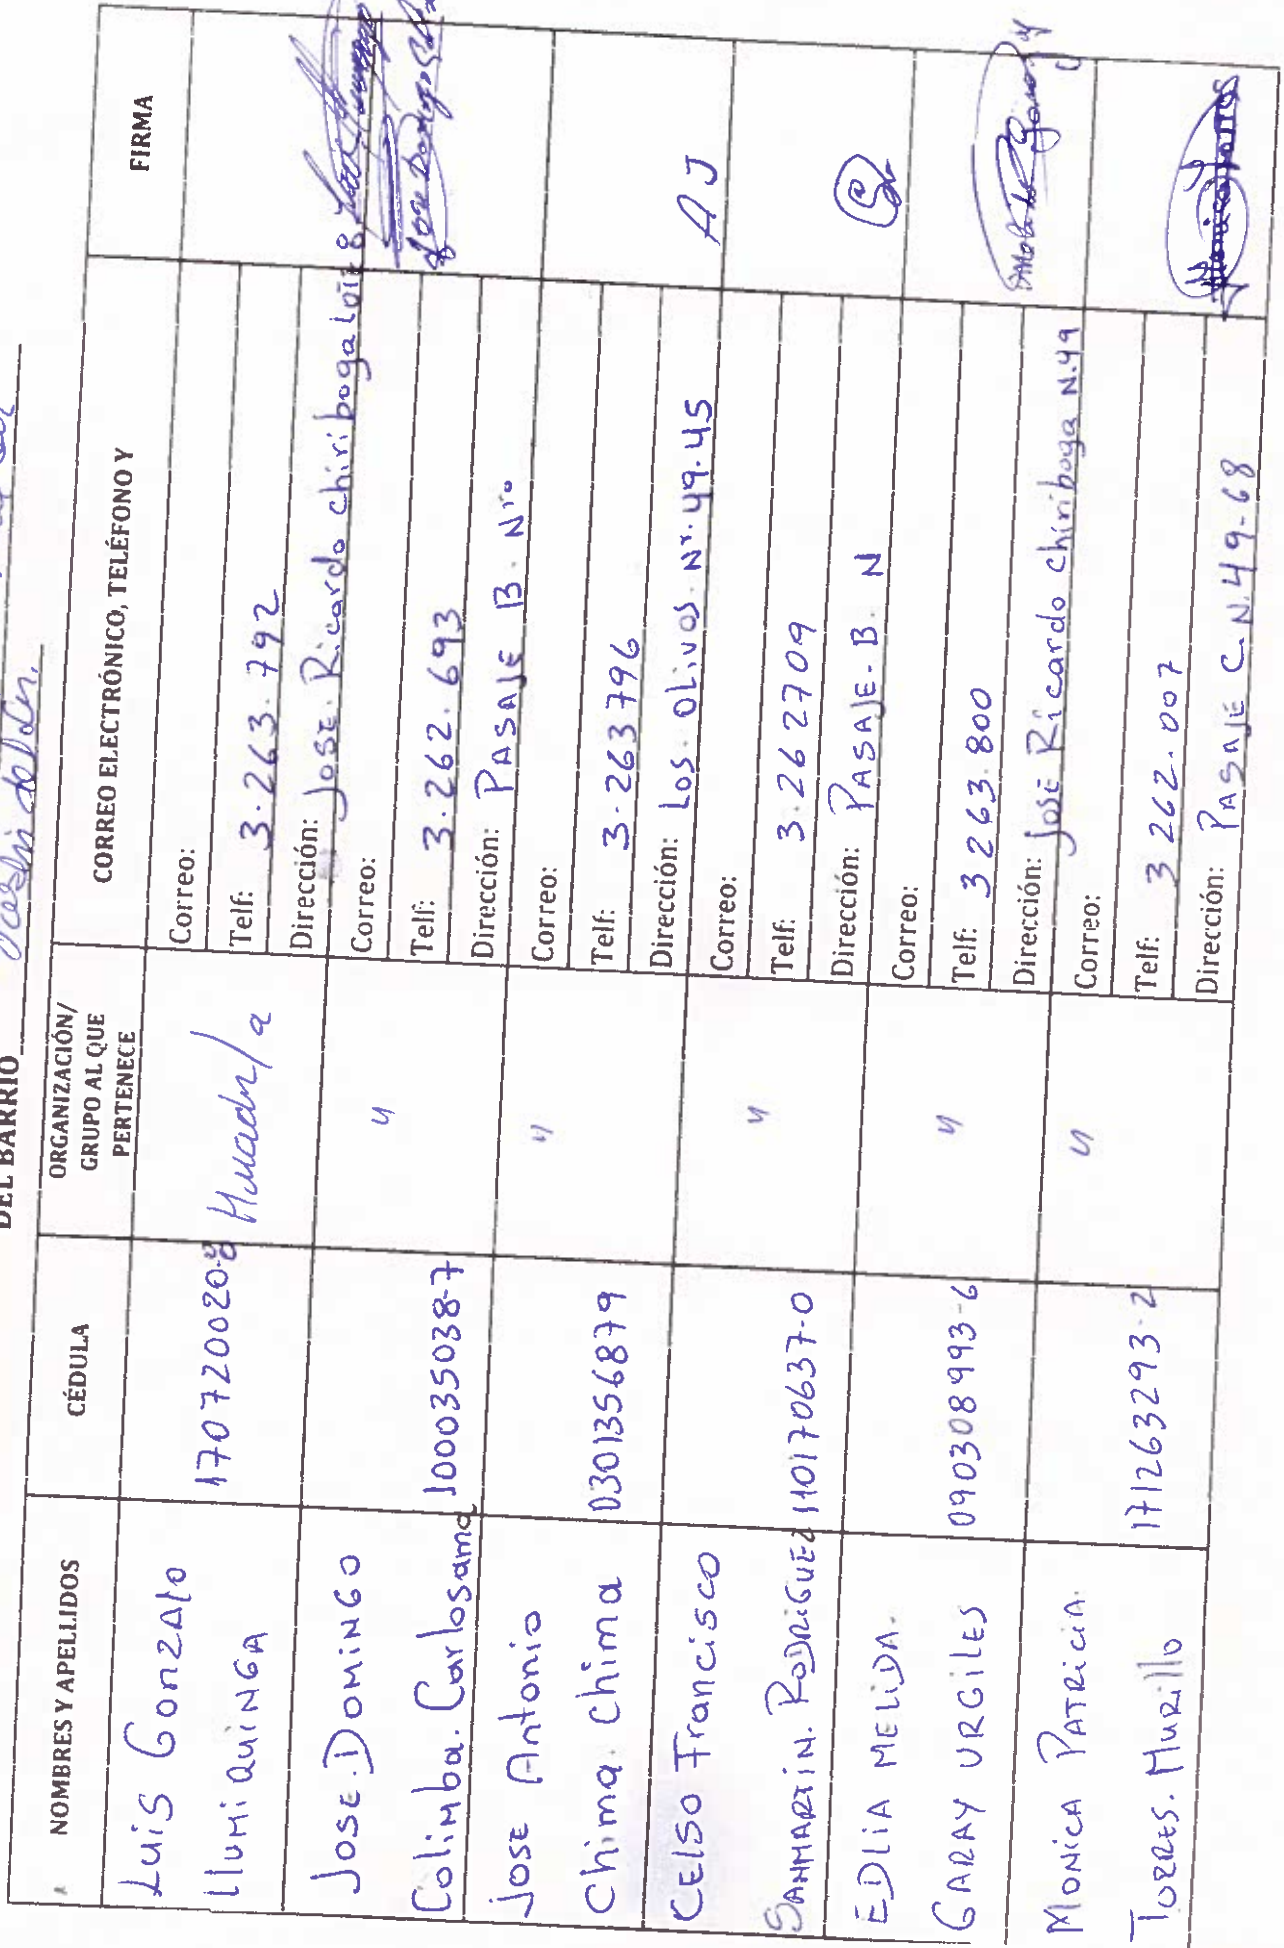 DEL BARRIO
NOMBRES Y APELLIDOS CÉDULA ORGANIZACIÓN/ GRUPO AL QUE PERTENECE CORREO ELECTRÓNICO, TELÉFONO Y FIRMA
Luis Gonzalo
Llumiquinga
170720020-8
Correo:
Telf: 3.263.792
Dirección: Jose. Ricardo chiriboga
Jose. Domingo
Colimba. Carlosama
100035038-7
"
Correo:
Telf: 3.262.693
Dirección: PASAJE B. Nro
Jose Domingo
Jose Antonio
Chima. Chima
0301356879
"
Correo:
Telf: 3-263796
Dirección: Los. Olivos. Nr. 49.45
A J
CELSO Francisco
SANMARTIN. RODRIGUEZ
110170637-0
"
Correo:
Telf: 3.262709
Dirección: PASAJE-B. N
EDLIA MELIDA.
GARAY URGILES
090308993-6
"
Correo:
Telf: 3263.800
Dirección: Jose Ricardo chiriboga N.49
MONICA PATRICIA.
TORRES. MURILLO
171263293-2
"
Correo:
Telf: 3262.007
Dirección: PASAJE C. N.49-68